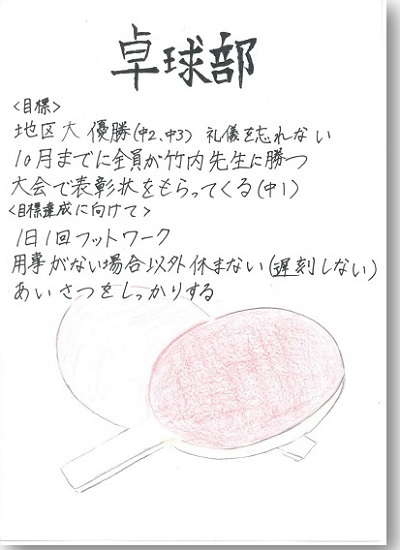 卓球部
<目標>
地区大 優勝(中2、中3) 礼儀を忘れない
10月までに全員が竹内先生に勝つ
大会で表彰状をもらってくる(中1)
<目標達成に向けて>
1日1回フットワーク
用事がない場合以外休まない(遅刻しない)
あいさつをしっかりする